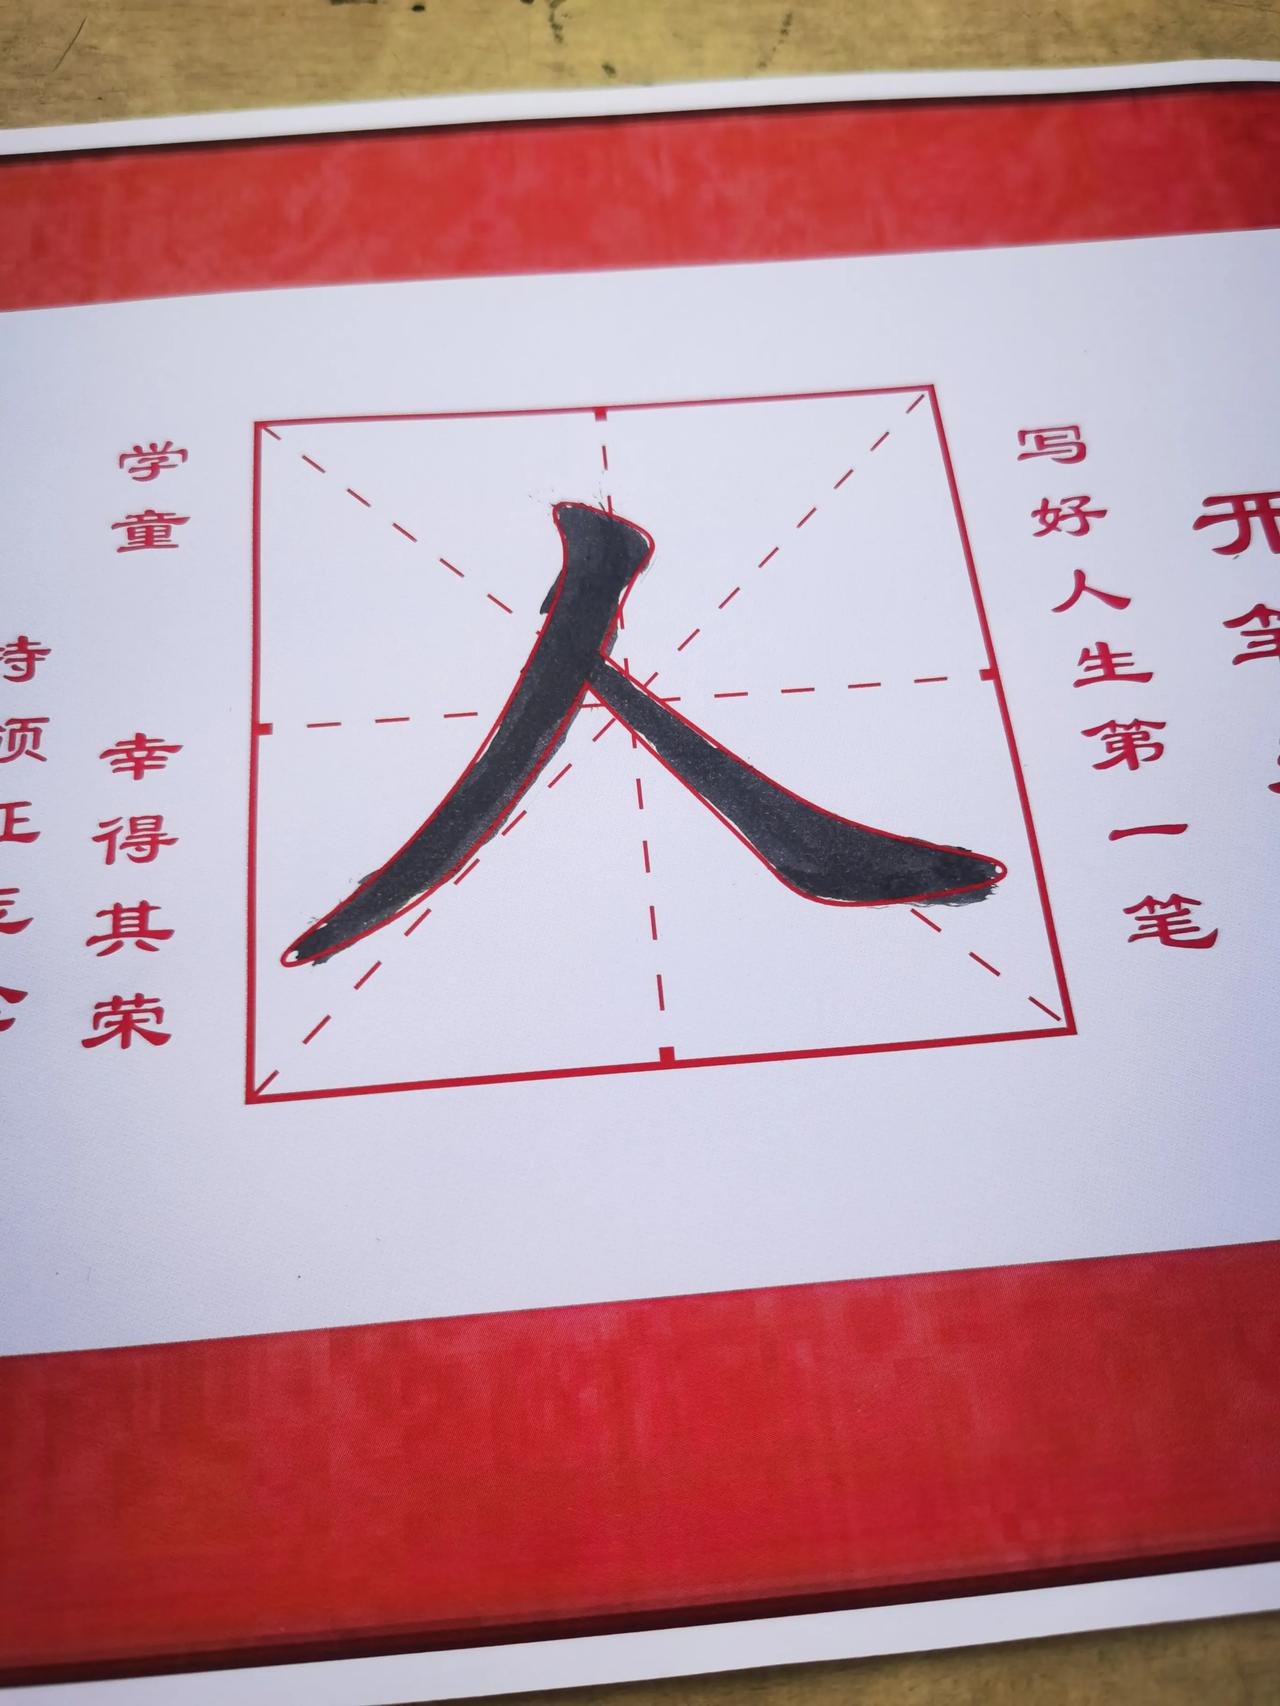 开笔
写好人生第一笔
人
学童 幸得其荣